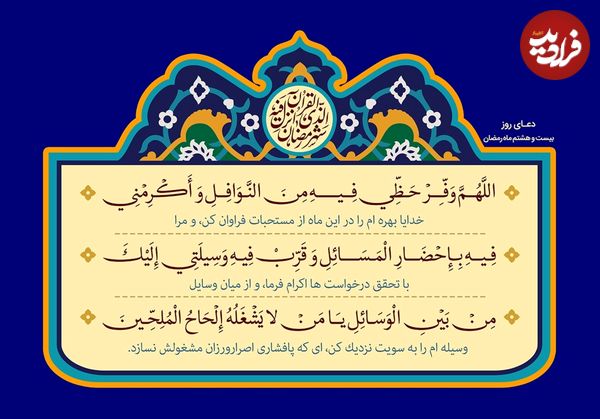 اخبار
فرادید
دعای روز
بیست و هشتم ماه رمضان
شهر رمضان الذی انزل فیه القرآن
اللَّهُمَّ وَفِّرْ حَظِّي فِيهِ مِنَ النَّوَافِلِ وَ أَكْرِمْنِي
خدایا بهره ام را در این ماه از مستحبات فراوان کن، و مرا
فِيهِ بِإِحْضَارِ الْمَسَائِلِ وَ قَرِّبْ فِيهِ وَسِيلَتِي إِلَيْكَ
با تحقق درخواست ها اکرام فرما، و از میان وسایل
مِنْ بَيْنِ الْوَسَائِلِ يَا مَنْ لا يَشْغَلُهُ إِلْحَاحُ الْمُلِحِّينَ
وسیله ام را به سویت نزدیك کن، ای که پافشاری اصرارورزان مشغولش نسازد.